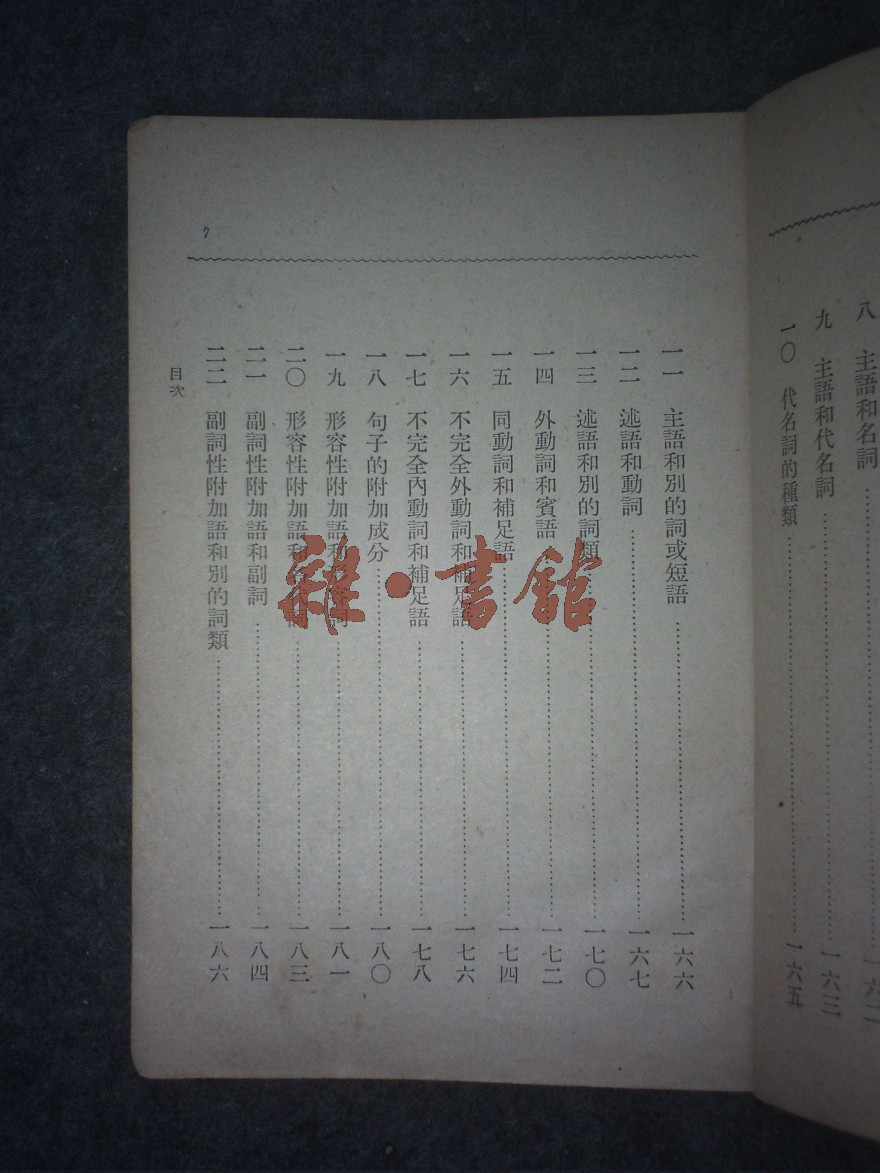 八 主語和名詞
九 主語和代名詞 一六三
一〇 代名詞的種類 一六五
一一 主語和別的詞或短語 一六六
一二 述語和動詞 一六七
一三 述語和別的詞類 一七〇
一四 外動詞和賓語 一七二
一五 同動詞和補足語 一七四
一六 不完全外動詞和補足語 一七六
一七 不完全內動詞和補足語 一七八
一八 句子的附加成分 一八〇
一九 形容性附加語和形容詞 一八一
二〇 形容性附加語和 詞 一八三
二一 副詞性附加語和副詞 一八四
二二 副詞性附加語和別的詞類 一八六
目次
7
雜·書館